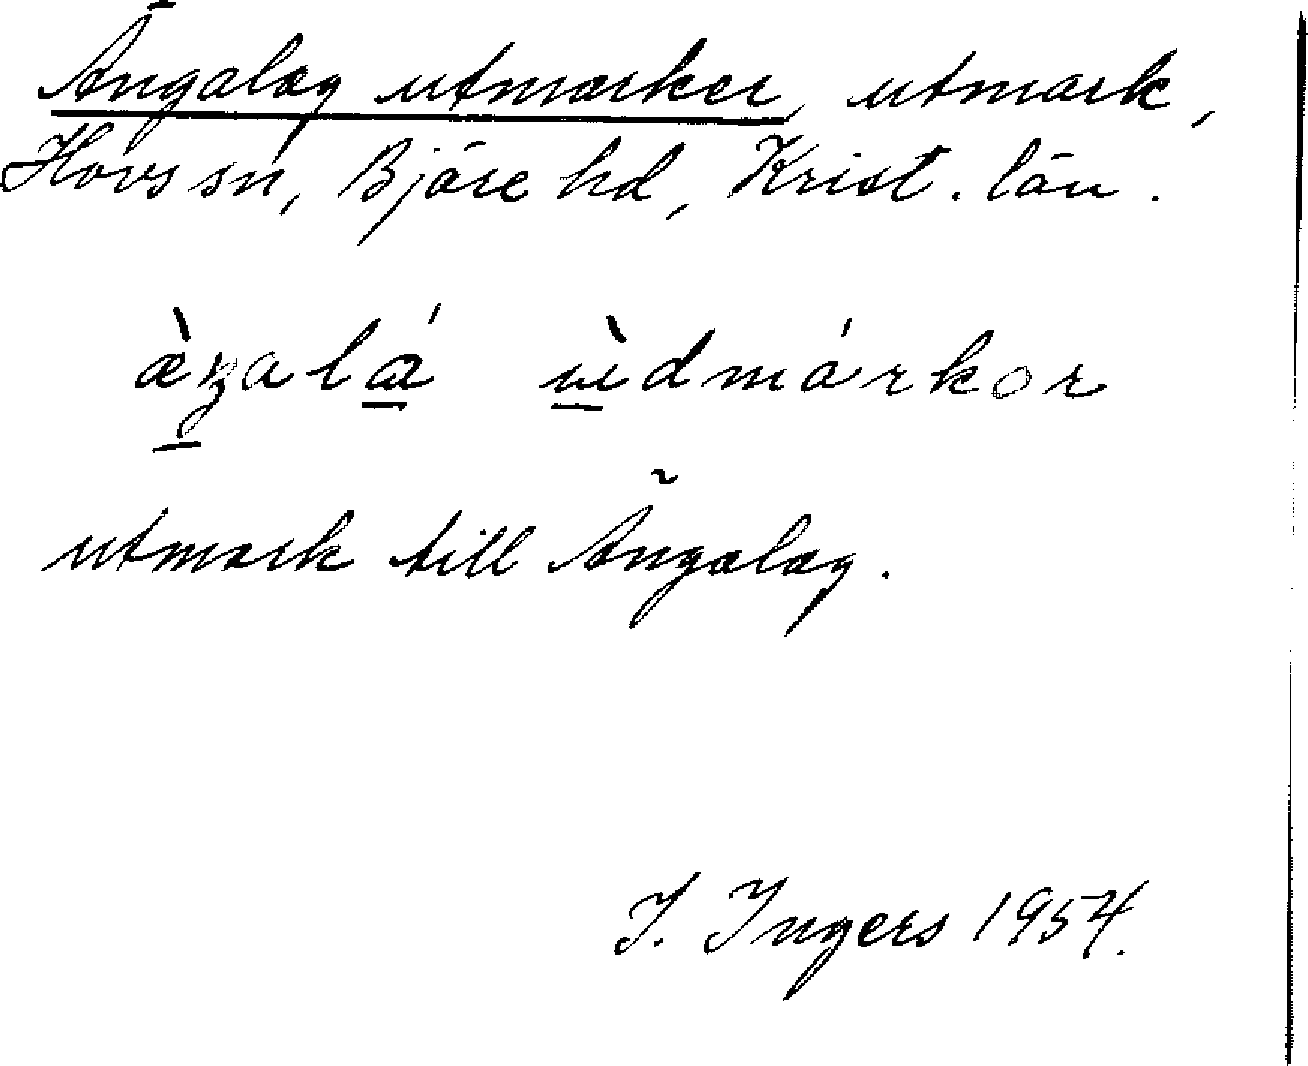 Ängalag utmarker, utmark,
Hovs sn, Bjäre hd, Krist. län.
utmark till Ängalag.
I. Ingers 1954.